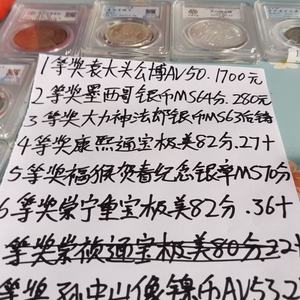 1等奖袁大头公博AV50.1700元
2等奖墨西哥银币MS64分.280元
3等奖大力神法郎银币MS63后铸
4等奖康熙通宝极美82分.27十
5等奖福猴贺春纪念银章MS70分
6等奖崇宁重宝极美82分.36十
等奖崇祯通宝极美80分22
等奖孙中山像镍币AV53.2